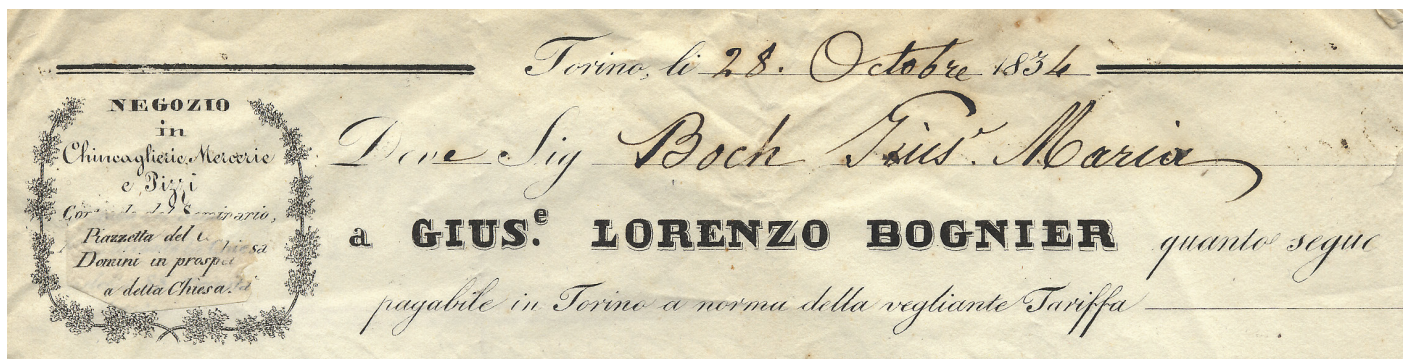 Torino, li 28. Octobre 1834
NEGOZIO
in
Chincaglierie, Mercerie
e Pizzi
del Seminario,
Piazzetta del
Domini in prospet
a detta Chiesa.
Deve Sig Boch Gius. Maria
a GIUS.e LORENZO BOGNIER quanto segue
pagabile in Torino a norma della vegliante Tariffa